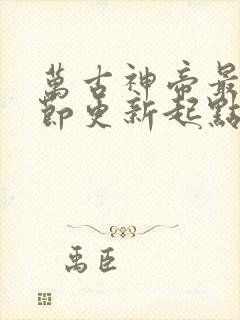 萬古神帝最
節更新起點
禹臣